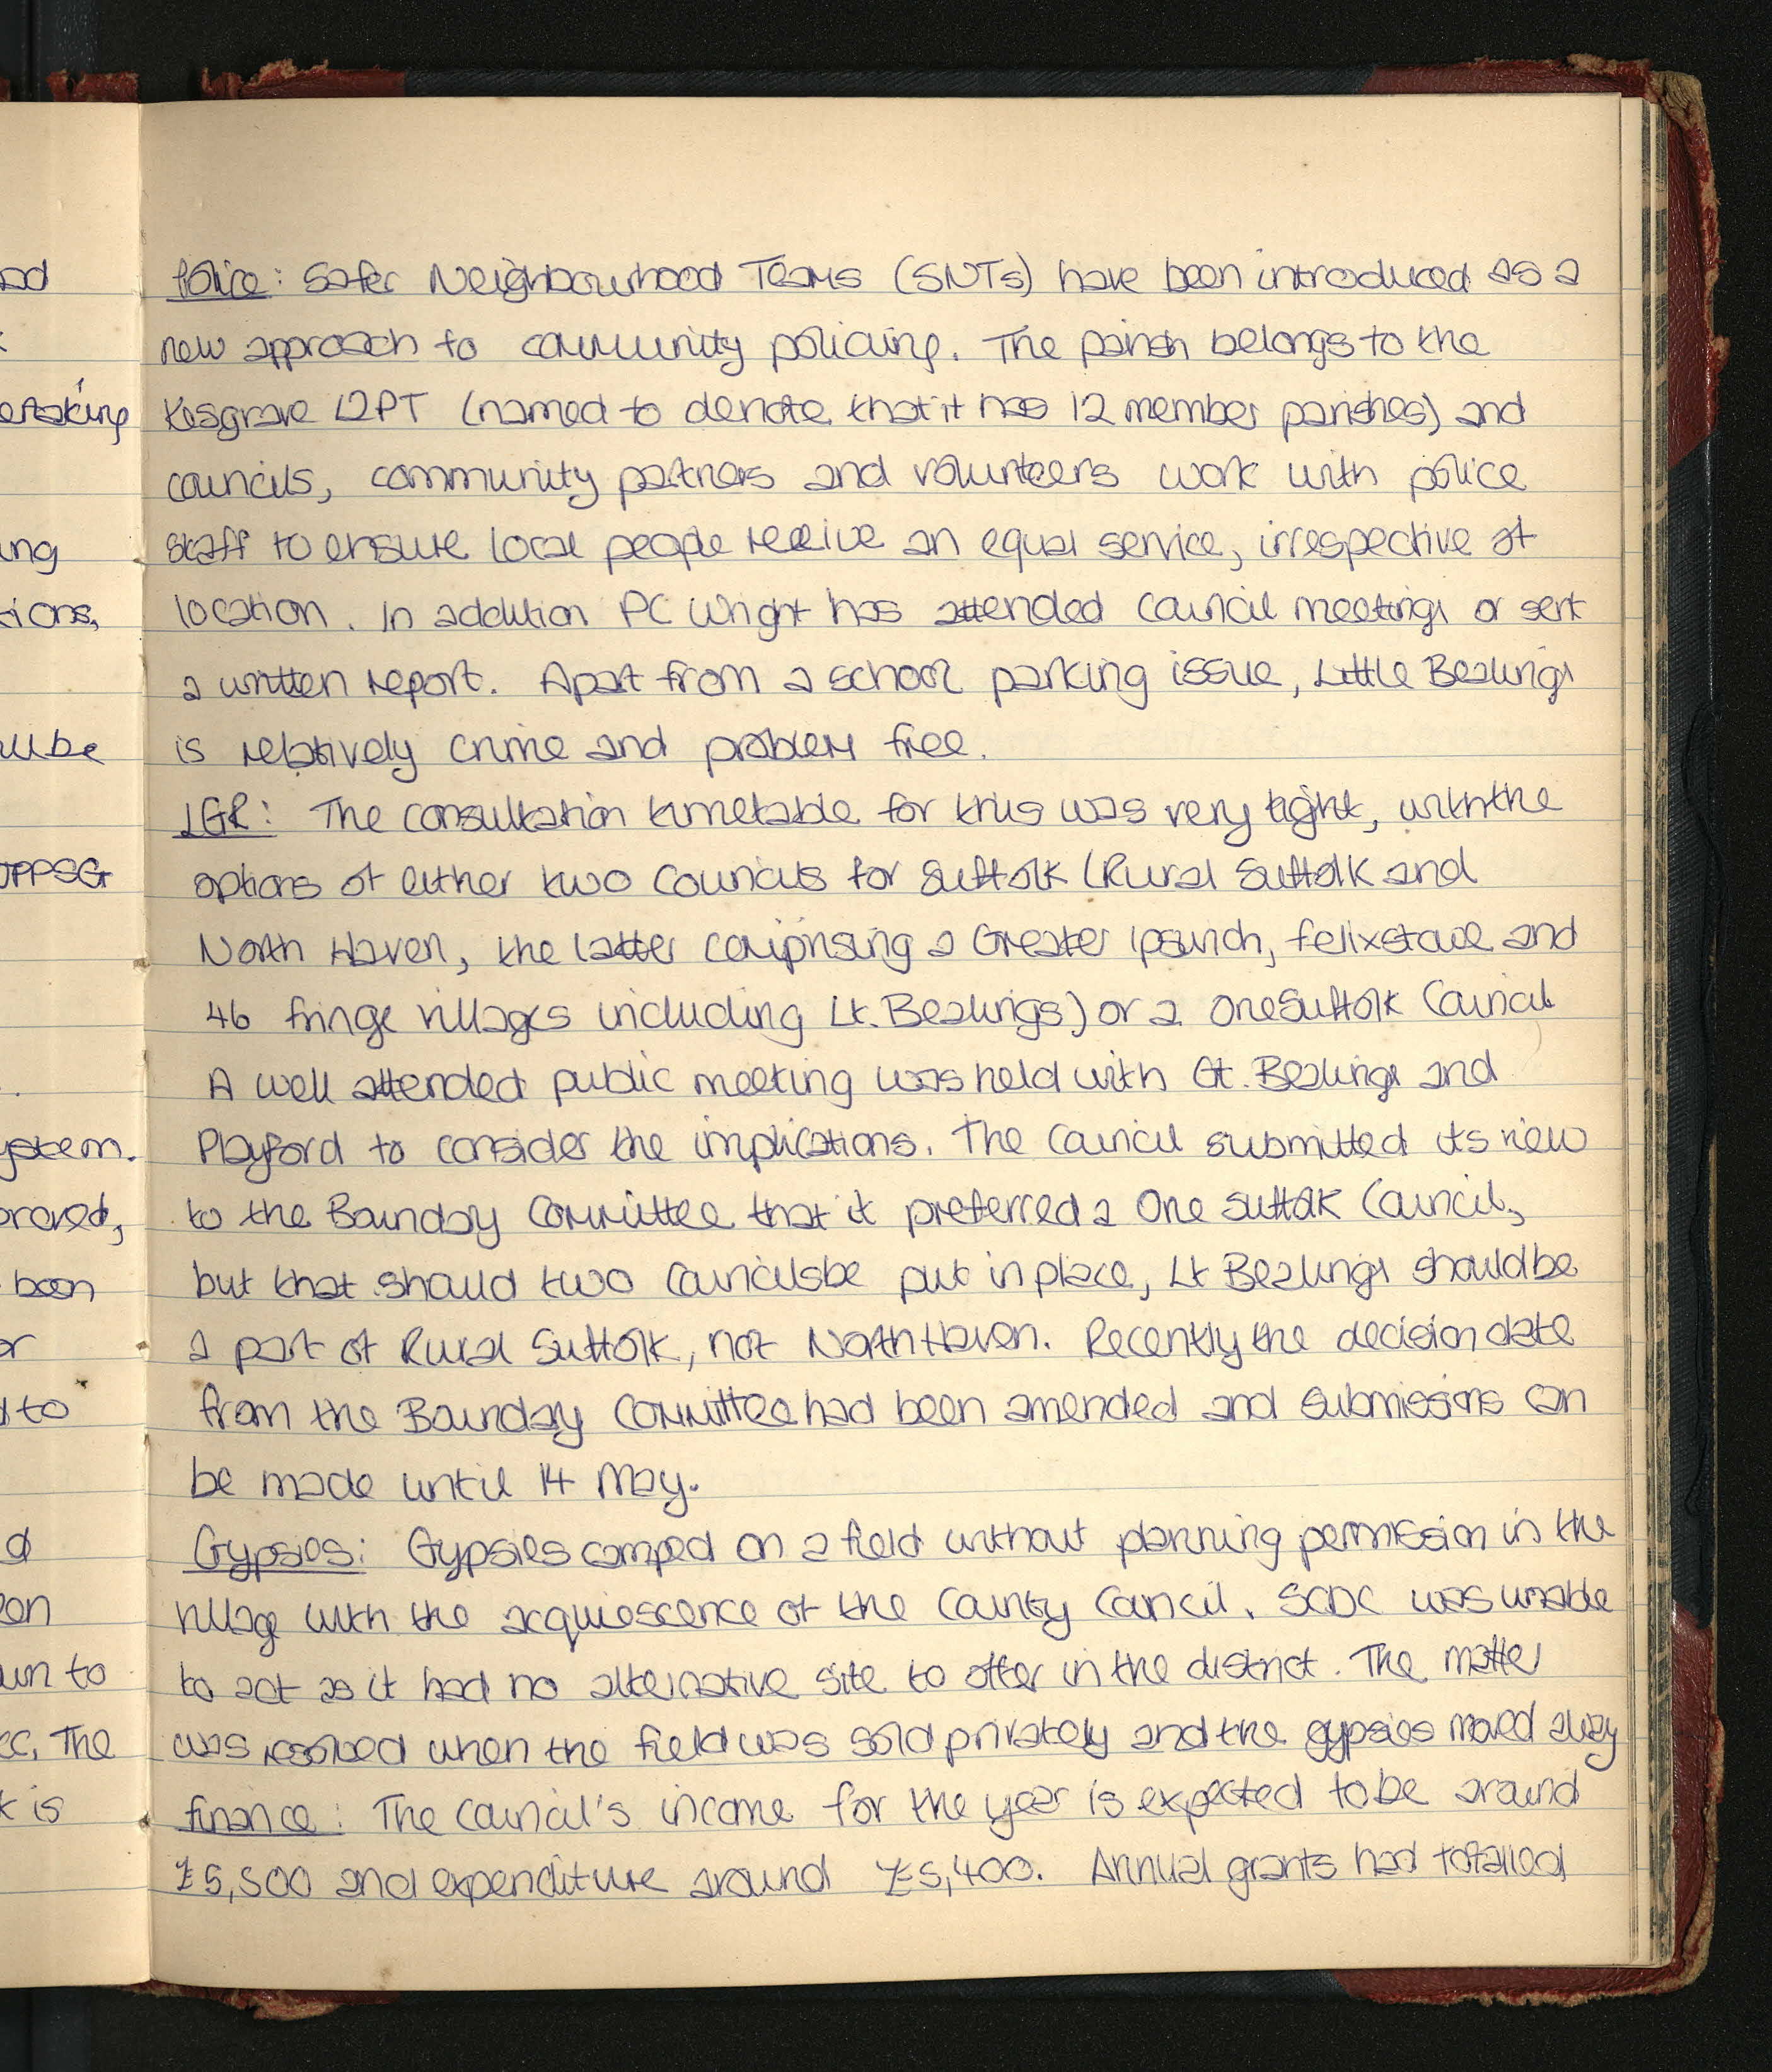 Police: Safer Neighbourhood Teams (SNTs) have been introduced as a
new approach to community policing. The parish belongs to the
Kesgrave 12PT (named to denote that it has 12 member parishes) and
councils, community partners and volunteers work with police
staff to ensure local people receive an equal service, irrespective of
location. In addition PC Wright has attended Council meetings or sent
a written report. Apart from a school parking issue, Little Bealings
is relatively crime and problem free.
LGR: The consultation timetable for this was very tight, with the
options of either two Councils for Suffolk (Rural Suffolk and
North Haven, the latter comprising a Greater Ipswich, Felixstowe and
46 fringe villages including Lt. Bealings) or a One Suffolk Council
A well attended public meeting was held with Gt. Bealings and
Playford to consider the implications. The Council submitted its view
to the Boundary Committee that it preferred a One Suffolk Council,
but that should two Councils be put in place, Lt Bealings should be
a part of Rural Suffolk, not North Haven. Recently the decision date
from the Boundary Committee had been amended and submissions can
be made until 14 May.
Gypsies: Gypsies camped on a field without planning permission in the
village with the acquiescence of the County Council. SCDC was unable
to act as it had no alternative site to offer in the district. The matter
was resolved when the field was sold privately and the gypsies moved away
Finance: The Council's income for the year is expected to be around
£5,500 and expenditure around £5,400. Annual grants had totalled